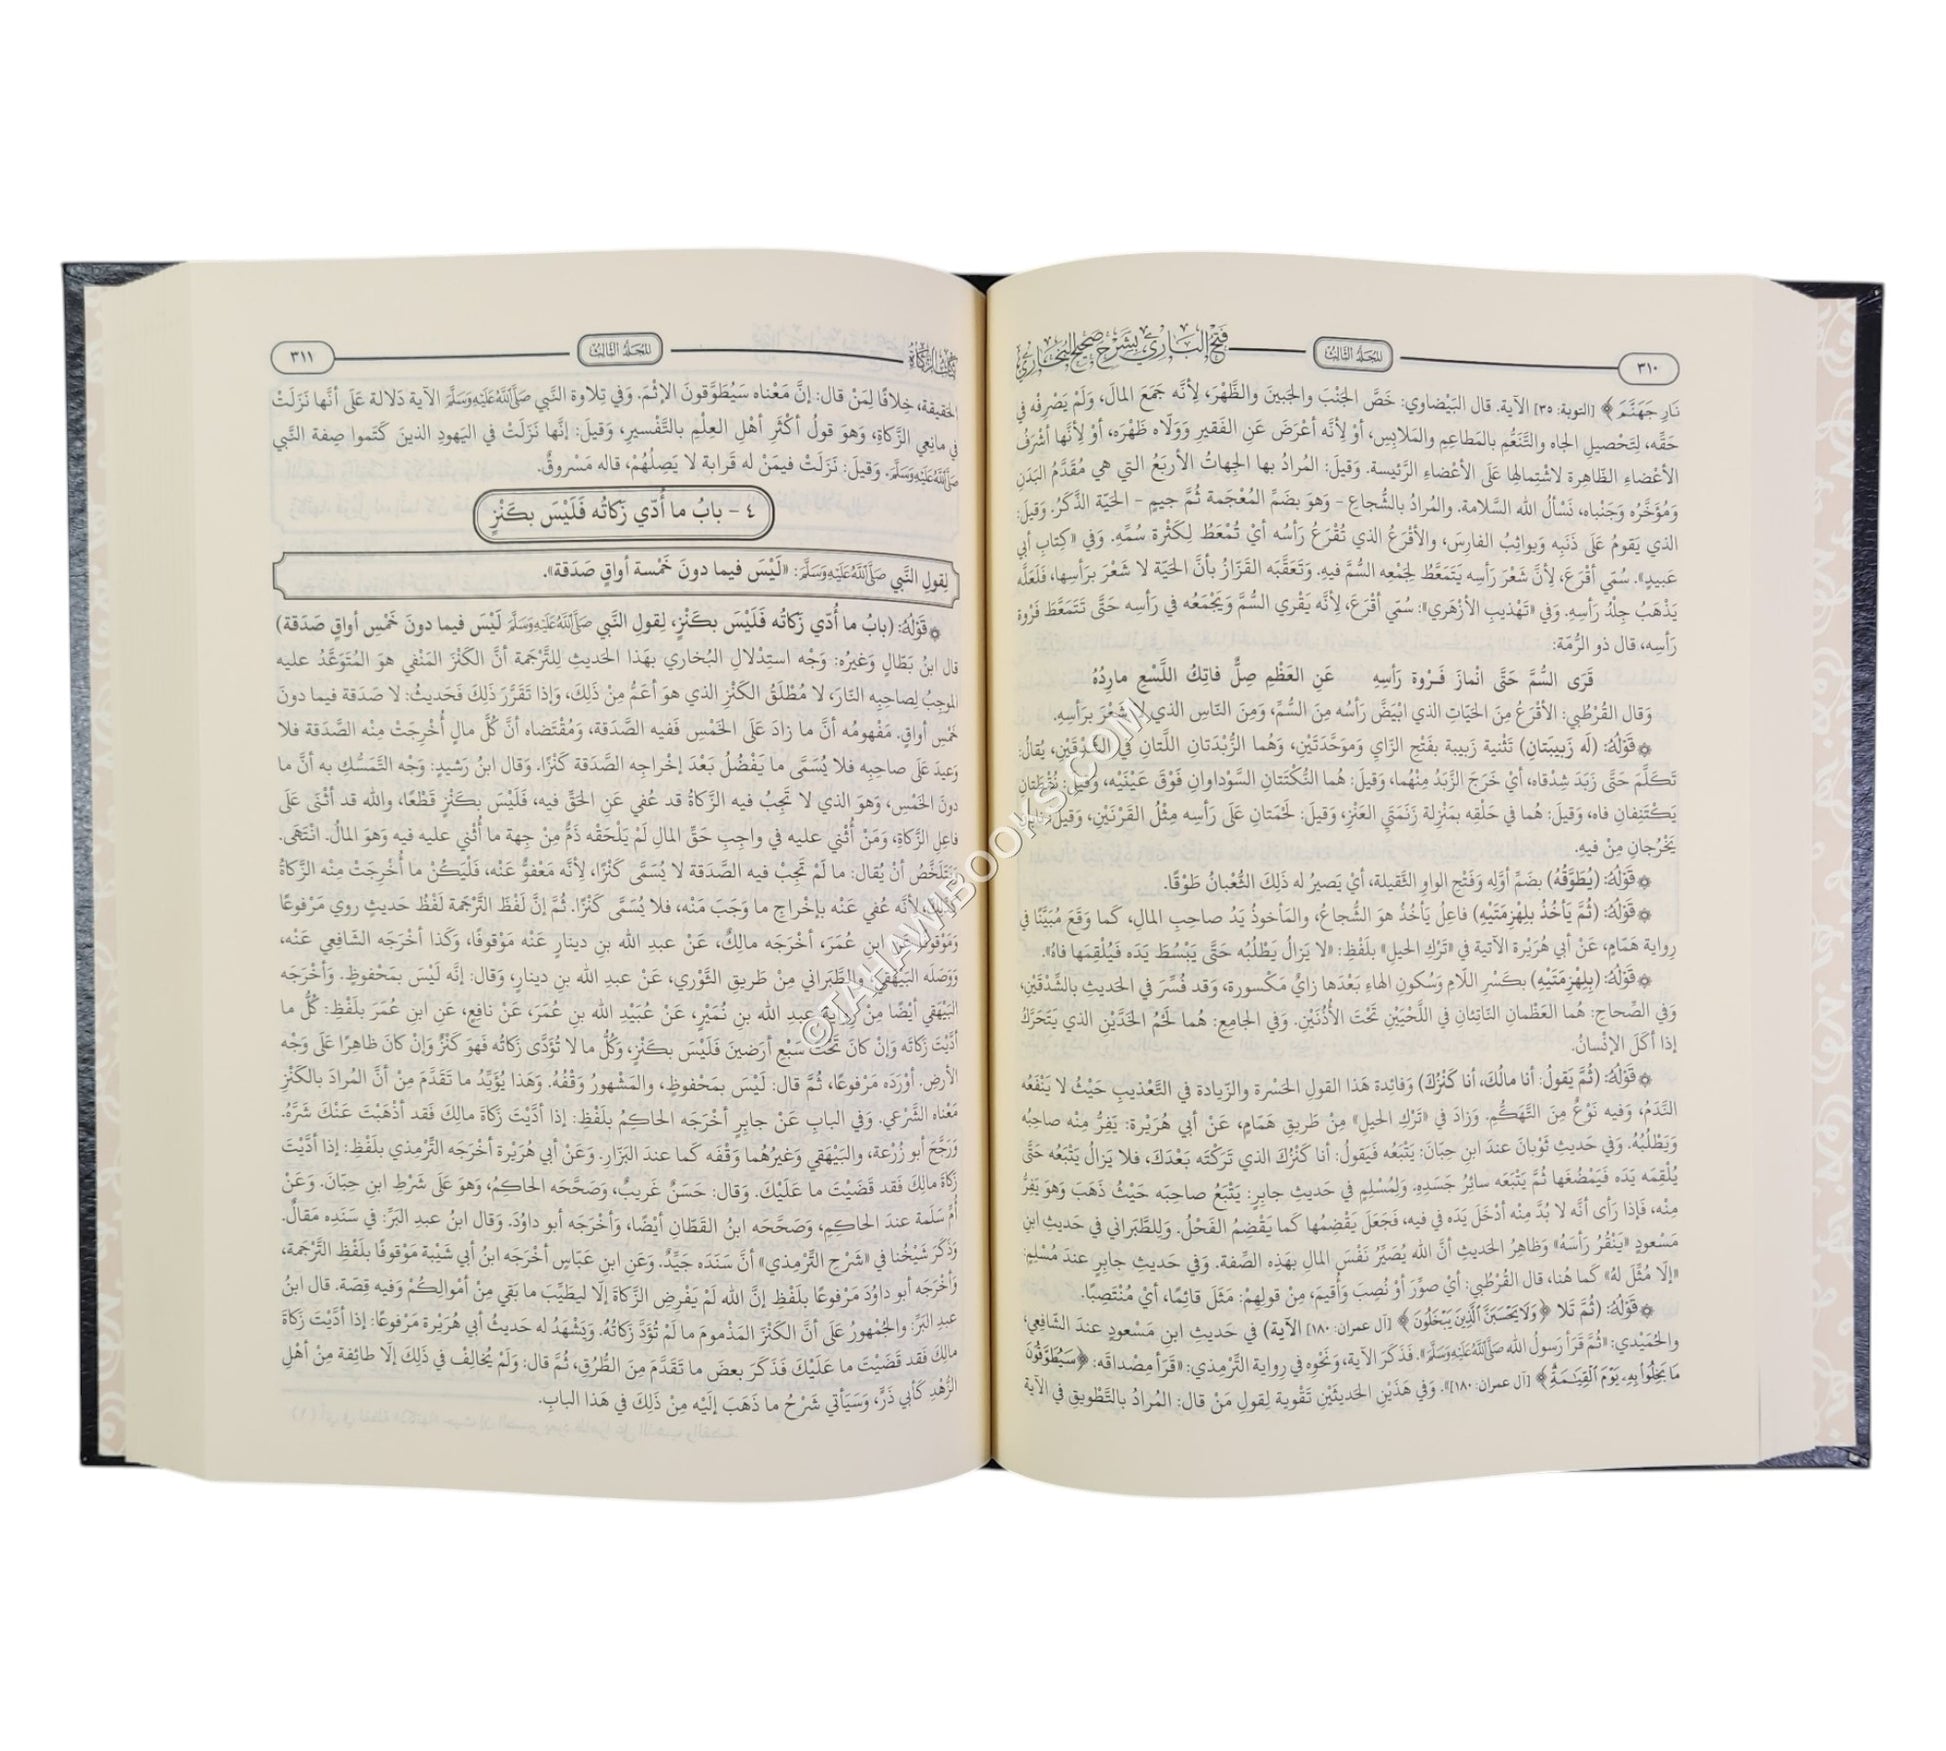 ٣١٠
المجلد الثالث
فتح الباري بشرح صحيح البخاري
نَارِ جَهَنَّمَ ﴾ [التوبة: ٣٥] الآية. قال البَيْضاوي: خَصَّ الجَنْبَ والجَبينَ والظَّهْرَ، لِأنَّه جَمَعَ المالَ، وَلَمْ يَصْرِفْه في
حَقِّه، لِتَحْصيلِ الجاه والتَّنَعُّمِ بِالمَطاعِمِ والمَلابِسِ، أوْ لِأنَّه أعْرَضَ عَنِ الفَقيرِ وَوَلّاه ظَهْرَه، أوْ لِأنَّها أشْرَفُ
الأعْضاءِ الظّاهِرة لاشْتِمالِها عَلَى الأعْضاءِ الرَّئيسة. وَقيلَ: المُرادُ بها الجِهاتُ الأربَعُ التي هي مُقَدَّمُ البَدَنِ
وَمُؤَخَّرُه وَجَنْباه، نَسْألُ الله السَّلامة. والمُرادُ بالشُّجاعِ - وَهوَ بضَمِّ المُعْجَمة ثُمَّ جيمٍ - الحَيّة الذَّكَرُ. وَقيلَ:
الذي يَقومُ عَلَى ذَنَبِه وَيواثِبُ الفارِسَ، والأقْرَعُ الذي تُقْرَعُ رَأسُه أيْ تُمْعَطُ لِكَثْرة سُمِّه. وَفي «كِتابِ أبي
عَبيدٍ». سُمّي أقْرَعَ، لِأنَّ شَعْرَ رَأسِه يَتَمَعَّطُ لِجَمْعِه السُّمَّ فيهِ. وَتَعَقَّبَه القَزّازُ بأنَّ الحَيّة لا شَعْرَ برَأسِها، فَلَعَلَّه
يَذْهَبُ جِلْدُ رَأسِهِ. وَفي «تَهْذيبِ الأزْهَري»: سُمّي أقْرَعَ، لِأنَّه يَقْري السُّمَّ وَيَجْمَعُه في رَأسِه حَتَّى تَتَمَعَّطَ فَرْوة
رَأسِه، قال ذو الرُّمّة:
قَرَى السُّمَّ حَتَّى انْمازَ فَـرْوة رَأسِهِ عَنِ العَظْمِ صِلٌّ فاتِكُ اللَّسْعِ مارِدُهُ
وَقال القُرْطُبي: الأقْرَعُ مِنَ الحَيّاتِ الذي ابْيَضَّ رَأسُه مِنَ السُّمِّ، وَمِنَ النّاسِ الذي لا شَعْرَ برَأسِهِ.
۞ قَوْلُهُ: (لَه زَبيبَتانِ) تَثْنية زَبيبة بفَتْحِ الزّاي وَموَحَّدَتَيْنِ، وَهُما الزُّبْدَتانِ اللَّتانِ في الشِّدْقَيْنِ، يُقالُ:
تَكَلَّمَ حَتَّى زَبَدَ شِدْقاه، أيْ خَرَجَ الزَّبَدُ مِنْهُما، وَقيلَ: هُما النُّكْتَتانِ السَّوْداوانِ فَوْقَ عَيْنَيْه، وَقيلَ: نُقْطَتانِ
يَكْتَنِفانِ فاه، وَقيلَ: هُما في حَلْقِه بمَنْزِلة زَنَمَتَي العَنْزِ، وَقيلَ: لَحْمَتانِ عَلَى رَأسِه مِثْلُ القَرْنَيْنِ، وَقيلَ: نابانِ
يَخْرُجانِ مِنْ فيهِ.
۞ قَوْلُهُ: (يُطَوَّقُهُ) بضَمِّ أوَّلِه وَفَتْحِ الواوِ الثَّقيلة، أيْ يَصيرُ له ذَلِكَ الثُّعْبانُ طَوْقًا.
۞ قَوْلُهُ: (ثُمَّ يَأخُذُ بلِهْزِمَتَيْهِ) فاعِلُ يَأخُذُ هوَ الشُّجاعُ، والمَأخوذُ يَدُ صاحِبِ المالِ، كَما وَقَعَ مُبَيَّنًا في
رِواية هَمّامٍ، عَنْ أبي هُرَيْرة الآتية في «تَرْكِ الحيلِ» بلَفْظِ: «لا يَزالُ يَطْلُبُه حَتَّى يَبْسُطَ يَدَه فَيُلْقِمَها فاهُ».
۞ قَوْلُهُ: (بِلِهْزِمَتَيْهِ) بكَسْرِ اللّامِ وَسُكونِ الهاءِ بَعْدَها زايٌ مَكْسورة، وَقد فُسِّرَ في الحَديثِ بالشِّدْقَيْنِ،
وَفي الصِّحاح: هُما العَظْمانِ النّاتِئانِ في اللَّحْيَيْنِ تَحْتَ الأُذُنَيْنِ. وَفي الجامِعِ: هُما لَحْمُ الخَدَّيْنِ الذي يَتَحَرَّكُ
إذا أكَلَ الإنْسانُ.
۞ قَوْلُهُ: (ثُمَّ يَقولُ: أنا مالُكَ، أنا كَنْزُكَ) وَفائِدة هَذا القولِ الحَسْرة والزّيادة في التَّعْذيبِ حَيْثُ لا يَنْفَعُه
النَّدَمُ، وَفيه نَوْعٌ مِنَ التَّهَكُّمِ. وَزادَ في «تَرْكِ الحيلِ» مِنْ طَريقِ هَمّامٍ، عَنْ أبي هُرَيْرة: يَفِرُّ مِنْه صاحِبُه
وَيَطْلُبُهُ. وَفي حَديثِ ثَوْبانَ عندَ ابنِ حِبّانَ: يَتْبَعُه فَيَقولُ: أنا كَنْزُكَ الذي تَرَكْتَه بَعْدَكَ، فَلا يَزالُ يَتْبَعُه حَتَّى
يُلْقِمَه يَدَه فَيَمْضُغَها ثُمَّ يَتْبَعَه سائِرُ جَسَدِهِ. وَلِمُسْلِمٍ في حَديثِ جابِرٍ: يَتْبَعُ صاحِبَه حَيْثُ ذَهَبَ وَهوَ يَفِرُّ
مِنْه، فَإذا رَأى أنَّه لا بُدَّ مِنْه أدْخَلَ يَدَه في فيه، فَجَعَلَ يَقْضِمُها كَما يَقْضِمُ الفَحْلُ. وَلِلطَّبَراني في حَديثِ ابنِ
مَسْعودٍ «يَنْقُرُ رَأسَهُ» وَظاهِرُ الحَديثِ أنَّ الله يُصَيِّرُ نَفْسَ المالِ بهَذِه الصِّفة. وَفي حَديثِ جابِرٍ عندَ مُسْلِمٍ:
«إلّا مُثِّلَ لهُ» كَما هُنا، قال القُرْطُبي: أيْ صوِّرَ أوْ نُصِبَ وَأُقيمَ، مِنْ قولِهِمْ: مَثَلَ قائِمًا، أيْ مُنْتَصِبًا.
۞ قَوْلُهُ: (ثُمَّ تَلا ﴿ وَلَا يَحْسَبَنَّ ٱلَّذِينَ يَبْخَلُونَ ﴾ [آل عمران: ١٨٠] الآية) في حَديثِ ابنِ مَسْعودٍ عندَ الشّافِعي،
والحُمَيْدي: «ثُمَّ قَرَأ رَسولُ الله ﷺ». فَذَكَرَ الآية، وَنَحْوِه في رِواية التِّرْمِذي: «قَرَأ مِصْداقَه: ﴿ سَيُطَوَّقُونَ
مَا بَخِلُوا بِهِۦ يَوْمَ ٱلْقِيَـٰمَةِ ﴾ [آل عمران: ١٨٠]». وَفي هَذَيْنِ الحَديثَيْنِ تَقْوية لِقولِ مَنْ قال: المُرادُ بالتَّطْويقِ في الآية
كتاب الزكاة
المجلد الثالث
٣١١
الحَقيقة، خِلافًا لِمَنْ قال: إنَّ مَعْناه سَيُطَوَّقونَ الإثْمَ. وَفي تِلاوة النَّبي ﷺ الآية دَلالة عَلَى أنَّها نَزَلَتْ
في مانِعي الزَّكاةِ، وَهوَ قولُ أكْثَرِ أهْلِ العِلْمِ بالتَّفْسيرِ، وَقيلَ: إنَّها نَزَلَتْ في اليَهودِ الذينَ كَتَموا صِفة النَّبي
ﷺ. وَقيلَ: نَزَلَتْ فيمَنْ له قَرابة لا يَصِلُهُمْ، قاله مَسْروقٌ.
٤ - بابُ ما أُدّي زَكاتُه فَلَيْسَ بكَنْزٍ
لِقولِ النَّبي ﷺ: «لَيْسَ فيما دونَ خَمْسة أواقٍ صَدَقة».
۞ قَوْلُهُ: (بابُ ما أُدّي زَكاتُه فَلَيْسَ بكَنْزٍ، لِقولِ النَّبي ﷺ لَيْسَ فيما دونَ خَمْسِ أواقٍ صَدَقة)
قال ابنُ بَطّالٍ وَغيرُه: وَجْه استِدْلالِ البُخاري بهَذا الحَديثِ لِلتَّرْجَمة أنَّ الكَنْزَ المَنْفي هوَ المُتَوَعَّدُ عليه
الموجِبُ لِصاحِبِه النّارَ، لا مُطْلَقُ الكَنْزِ الذي هوَ أعَمُّ مِنْ ذَلِكَ، وَإذا تَقَرَّرَ ذَلِكَ فَحَديثُ: لا صَدَقة فيما دونَ
خَمْسِ أواقٍ. مَفْهومُه أنَّ ما زادَ عَلَى الخَمْسِ فَفيه الصَّدَقة، وَمُقْتَضاه أنَّ كُلَّ مالٍ أُخْرِجَتْ مِنْه الصَّدَقة فَلا
وَعيدَ عَلَى صاحِبِه فَلا يُسَمَّى ما يَفْضُلُ بَعْدَ إخْراجِه الصَّدَقة كَنْزًا. وَقال ابنُ رَشيدٍ: وَجْه التَّمَسُّكِ به أنَّ ما
دونَ الخَمْسِ، وَهوَ الذي لا تَجِبُ فيه الزَّكاةُ قد عُفي عَنِ الحَقِّ فيه، فَلَيْسَ بكَنْزٍ قَطْعًا، والله قد أثْنَى عَلَى
فاعِلِ الزَّكاةِ، وَمَنْ أُثْني عليه في واجِبِ حَقِّ المالِ لَمْ يَلْحَقْه ذَمٌّ مِنْ جِهة ما أُثْني عليه فيه وَهوَ المالُ. انْتَهَى.
وَيَتَلَخَّصُ أنْ يُقالَ: ما لَمْ تَجِبْ فيه الصَّدَقة لا يُسَمَّى كَنْزًا، لِأنَّه مَعْفوٌّ عَنْه، فَلْيَكُنْ ما أُخْرِجَتْ مِنْه الزَّكاةُ
كَذَلِكَ، لِأنَّه عُفي عَنْه بإخْراجِ ما وَجَبَ مَنْه، فَلا يُسَمَّى كَنْزًا. ثُمَّ إنَّ لَفْظَ التَّرْجَمة لَفْظُ حَديثٍ روي مَرْفوعًا
وَمَوْقوفًا عَنِ ابنِ عُمَرَ، أخْرَجَه مالِكٌ، عَنْ عبدِ الله بنِ دينارٍ عَنْه مَوْقوفًا، وَكَذا أخْرَجَه الشّافِعي عَنْه،
وَوَصَلَه البَيْهَقي والطَّبَراني مِنْ طَريقِ الثَّوْري، عَنْ عبدِ الله بنِ دينارٍ، وَقال: إنَّه لَيْسَ بمَحْفوظٍ. وَأخْرَجَه
البَيْهَقي أيْضًا مِنْ رِواية عبدِ الله بنِ نُمَيْرٍ، عَنْ عُبَيْدِ الله بنِ عُمَرَ، عَنْ نافِعٍ، عَنِ ابنِ عُمَرَ بلَفْظِ: كُلُّ ما
أدَّيْتَ زَكاتَه وَإنْ كانَ تَحْتَ سَبْعِ أرَضينَ فَلَيْسَ بكَنْزٍ، وَكُلُّ ما لا تُؤَدَّى زَكاتُه فَهوَ كَنْزٌ وَإنْ كانَ ظاهِرًا عَلَى وَجْه
الأرضِ. أوْرَدَه مَرْفوعًا، ثُمَّ قال: لَيْسَ بمَحْفوظٍ، والمَشْهورُ وَقْفُهُ. وَهَذا يُؤَيِّدُ ما تَقَدَّمَ مِنْ أنَّ المُرادَ بالكَنْزِ
مَعْناه الشَّرْعي. وَفي البابِ عَنْ جابِرٍ أخْرَجَه الحاكِمُ بلَفْظِ: إذا أدَّيْتَ زَكاةَ مالِكَ فَقد أذْهَبْتَ عَنْكَ شَرَّهُ.
وَرَجَّحَ أبو زُرْعة، والبَيْهَقي وَغيرُهُما وَقْفَه كَما عندَ البَزّارِ. وَعَنْ أبي هُرَيْرة أخْرَجَه التِّرْمِذي بلَفْظِ: إذا أدَّيْتَ
زَكاةَ مالِكَ فَقد قَضَيْتَ ما عَلَيْكَ. وَقال: حَسَنٌ غَريبٌ، وَصَحَّحَه الحاكِمُ، وَهوَ عَلَى شَرْطِ ابنِ حِبّانَ. وَعَنْ
أُمِّ سَلَمة عندَ الحاكِمِ، وَصَحَّحَه ابنُ القَطّانِ أيْضًا، وَأخْرَجَه أبو داوُدَ. وَقال ابنُ عبدِ البَرِّ: في سَنَدِه مَقالٌ.
وَذَكَرَ شَيْخُنا في «شَرْحِ التِّرْمِذي» أنَّ سَنَدَه جَيِّدٌ. وَعَنِ ابنِ عَبّاسٍ أخْرَجَه ابنُ أبي شَيْبة مَوْقوفًا بلَفْظِ التَّرْجَمة،
وَأخْرَجَه أبو داوُدَ مَرْفوعًا بلَفْظِ إنَّ الله لَمْ يَفْرِضِ الزَّكاةَ إلّا ليطَيِّبَ ما بَقي مِنْ أمْوالِكُمْ وَفيه قِصّة. قال ابنُ
عبدِ البَرِّ: والجُمْهورُ عَلَى أنَّ الكَنْزَ المَذْمومَ ما لَمْ تُؤَدَّ زَكاتُهُ. وَيَشْهَدُ له حَديثُ أبي هُرَيْرة مَرْفوعًا: إذا أدَّيْتَ زَكاةَ
مالِكَ فَقد قَضَيْتَ ما عَلَيْكَ فَذَكَرَ بعضَ ما تَقَدَّمَ مِنَ الطُّرُقِ، ثُمَّ قال: وَلَمْ يُخالِفْ في ذَلِكَ إلّا طائِفة مِنْ أهْلِ
الزُّهْدِ كَأبي ذَرٍّ، وَسَيَأتي شَرْحُ ما ذَهَبَ إلَيْه مِنْ ذَلِكَ في هَذا البابِ.
©TAHAWIBOOKS.COM